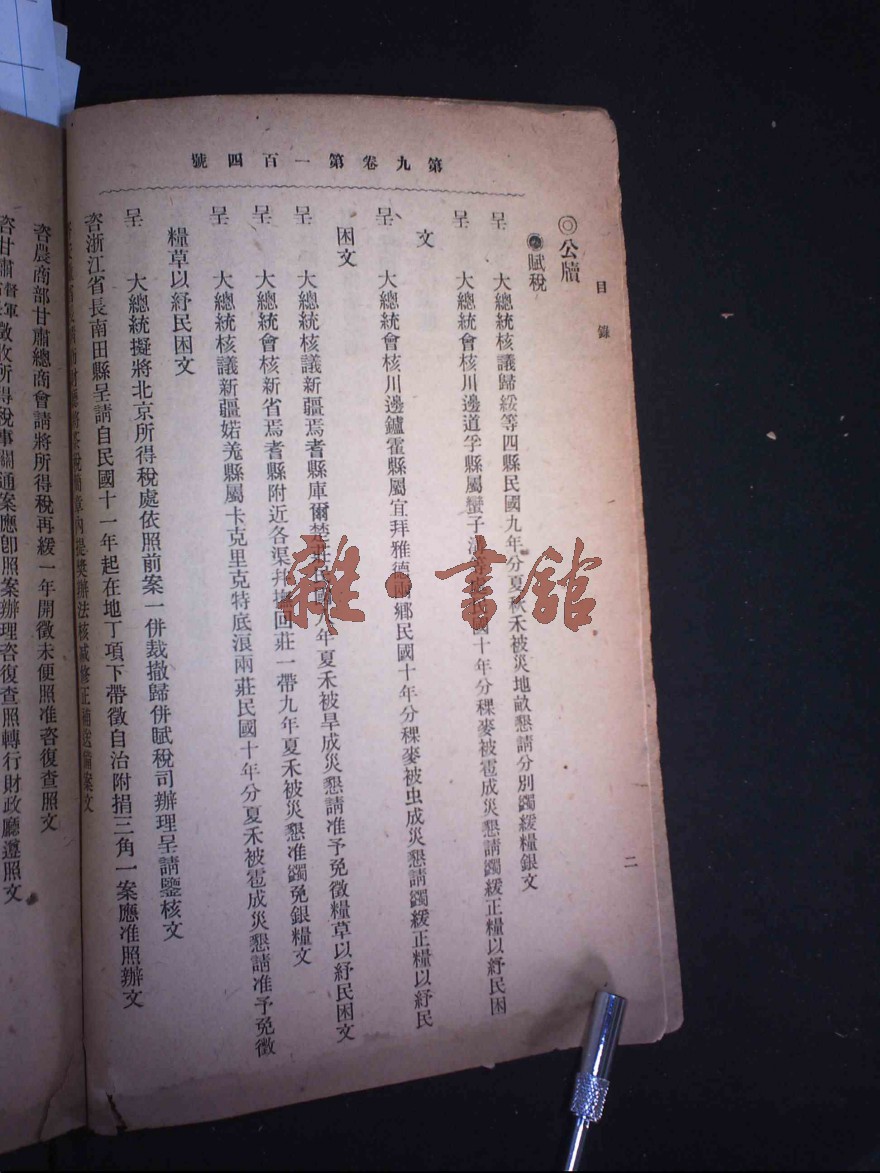 第九卷第一百四號
目錄
二
◎公牘
賦稅
呈 大總統核議歸綏等四縣民國九年分夏秋禾被災地畝懇請分別蠲緩糧銀文
呈 大總統會核川邊道孚縣屬蠻子 民國十年分稞麥被雹成災懇請蠲緩正糧以紓民困
文
呈 大總統會核川邊鑪霍縣屬宜拜雅德兩鄉民國十年分稞麥被虫成災懇請蠲緩正糧以紓民
困文
呈 大總統核議新疆焉耆縣庫爾楚 民國九年夏禾被旱成災懇請准予免徵糧草以紓民困文
呈 大總統會核新省焉耆縣附近各渠 回莊一帶九年夏禾被災懇准蠲免銀糧文
呈 大總統核議新疆婼羌縣屬卡克里克特底浪兩莊民國十年分夏禾被雹成災懇請准予免徵
糧草以紓民困文
呈 大總統擬將北京所得稅處依照前案一併裁撤歸併賦稅司辦理呈請鑒核文
咨浙江省長南田縣呈請自民國十一年起在地丁項下帶徵自治附捐三角一案應准照辦文
稅簡章內提獎辦法核減修正補送備案文
咨農商部甘肅總商會請將所得稅再緩一年開徵未便照准咨復查照文
咨甘肅督軍 徵收所得稅事關通案應卽照案辦理咨復查照轉行財政廳遵照文
雜·書館